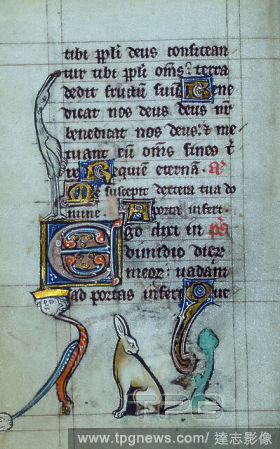 tibi ppli deus confitean
tur tibi ppli oms: terra
dedit fructum suū Bene
dicat nos deus deus nr
benedicat nos deus: t me
tuant eū oms fines t
re Requiem eternā. a
Me suscepit dextera tua do
mine A porta inferi.
Ego dixi in ps
dimidio dier
meor: uadam
ad portas inferi Que
TPG
www.tpgnews.com/ 達志影像